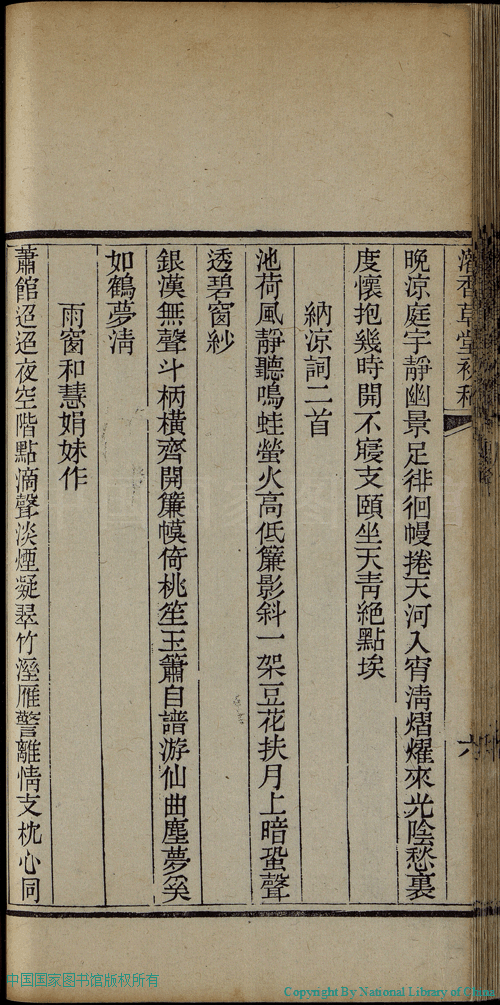 香草堂
晚涼庭宇靜幽景足徘徊幔捲天河入宵淸熠燿來光陰愁裏
度懷抱幾時開不寢支頤坐天靑絕點埃
納涼詞二首
池荷風靜聽鳴蛙螢火高低簾影斜一架豆花扶月上暗蛩聲
透碧窗紗
銀漢無聲斗柄橫齊開簾幙倚桃笙玉簫自譜游仙曲塵夢奚
如鶴夢淸
雨窗和慧娟妹作
蕭館迢迢夜空階點滴聲淡煙凝翠竹溼雁警離情支枕心同
六
中国国家图书馆版权所有
Copyright By National Library of China